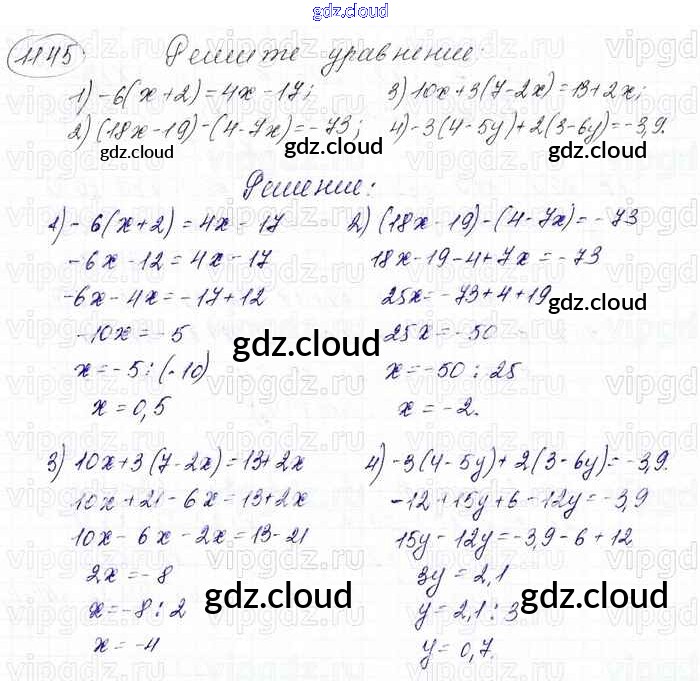 gdz.cloud
1145 Решите уравнение:
1) -6(x+2)=4x-17; 3) 10x+3(7-2x)=13+2x;
2) (18x-19)-(4-7x)=-73; 4) -3(4-5y)+2(3-6y)=-3,9.
gdz.cloud gdz.cloud gdz.cloud
Решение:
1) -6(x+2)=4x-17
-6x-12=4x-17
-6x-4x=-17+12
-10x=-5
x=-5:(-10)
x=0,5
gdz.cloud
2) (18x-19)-(4-7x)=-73
18x-19-4+7x=-73
25x=-73+4+19
25x=-50
x=-50:25
x=-2.
gdz.cloud
3) 10x+3(7-2x)=13+2x
10x+21-6x=13+2x
10x-6x-2x=13-21
2x=-8
x=-8:2
x=-4
gdz.cloud
4) -3(4-5y)+2(3-6y)=-3,9.
-12+15y+6-12y=-3,9
15y-12y=-3,9-6+12
3y=2,1
y=2,1:3
y=0,7.
gdz.cloud